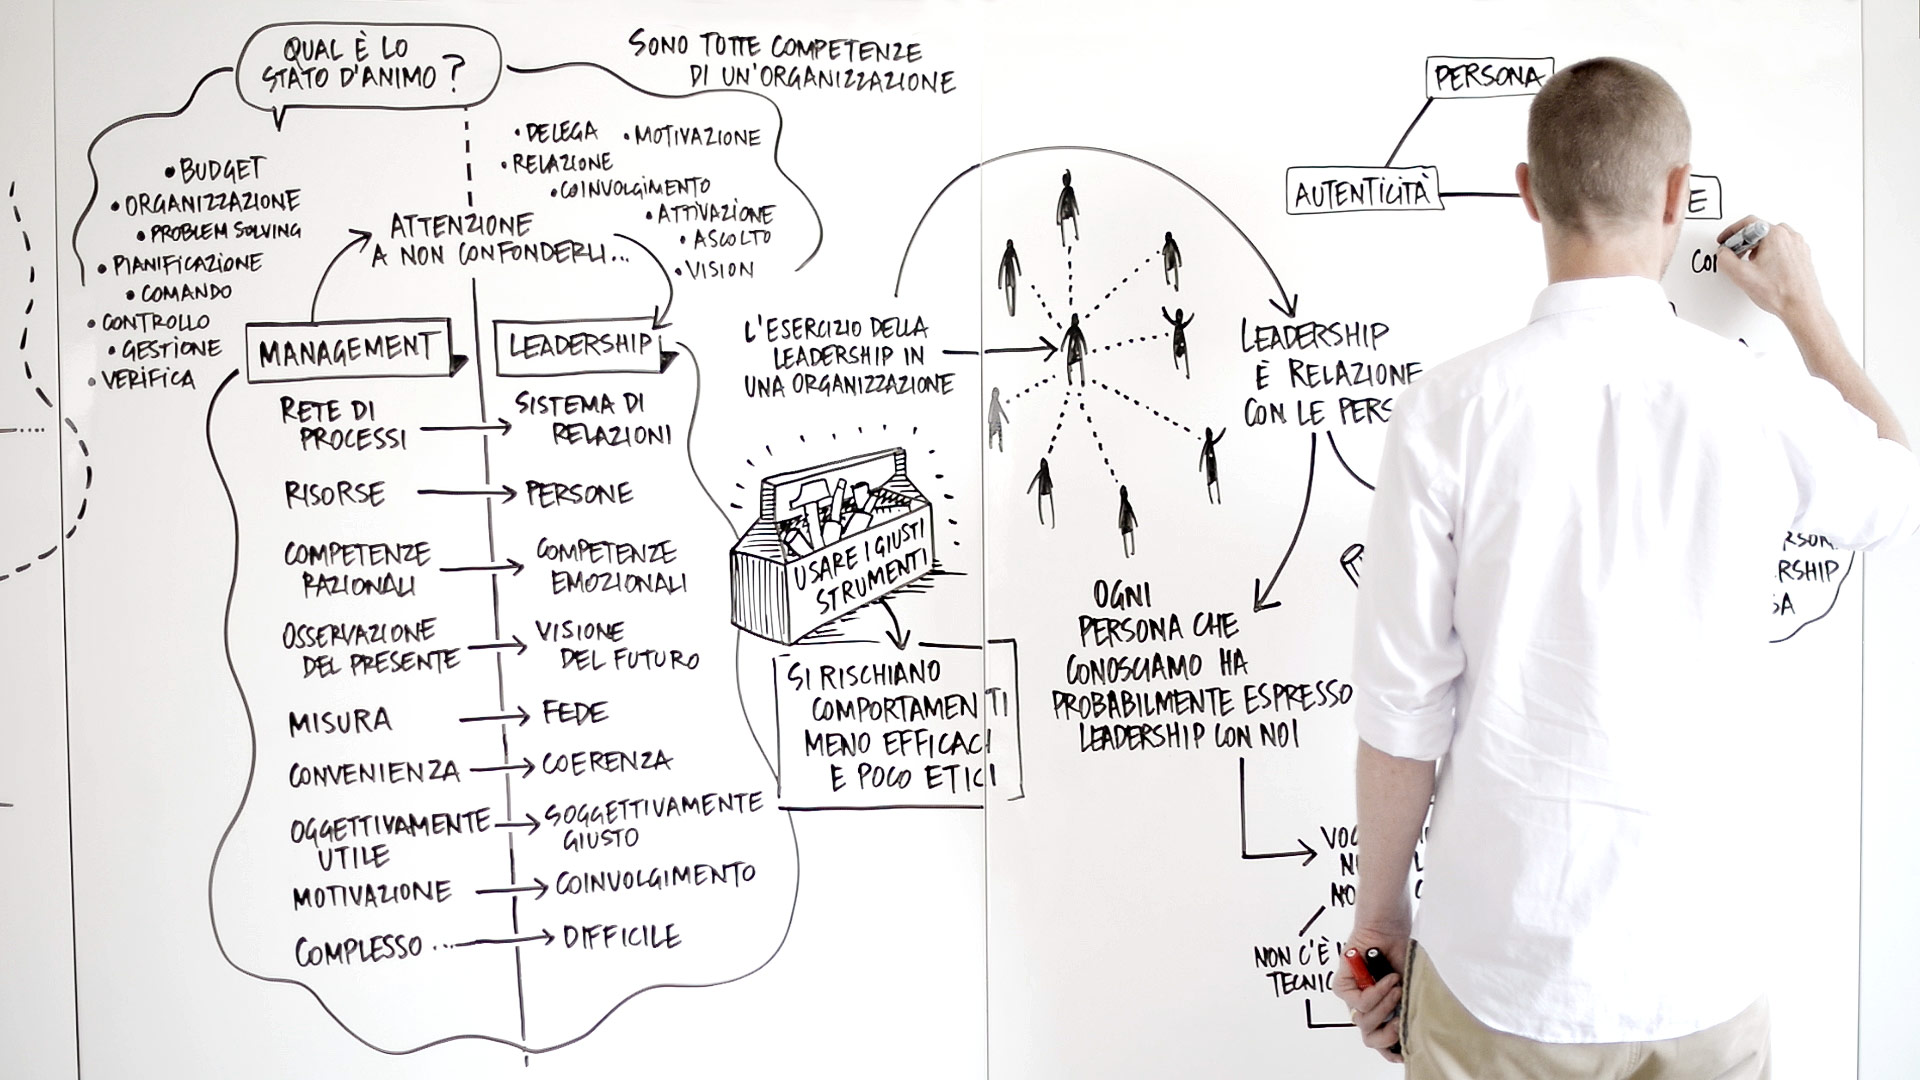 QUAL È LO
STATO D'ANIMO?
SONO TUTTE COMPETENZE
DI UN'ORGANIZZAZIONE
• BUDGET
• ORGANIZZAZIONE
• PROBLEM SOLVING
• PIANIFICAZIONE
• COMANDO
• CONTROLLO
• GESTIONE
• VERIFICA
• DELEGA
• MOTIVAZIONE
• RELAZIONE
• COINVOLGIMENTO
• ATTIVAZIONE
• ASCOLTO
• VISION
ATTENZIONE
A NON CONFONDERLI...
MANAGEMENT
LEADERSHIP
RETE DI
PROCESSI
SISTEMA DI
RELAZIONI
RISORSE
PERSONE
COMPETENZE
RAZIONALI
COMPETENZE
EMOZIONALI
OSSERVAZIONE
DEL PRESENTE
VISIONE
DEL FUTURO
MISURA
FEDE
CONVENIENZA
COERENZA
OGGETTIVAMENTE
UTILE
SOGGETTIVAMENTE
GIUSTO
MOTIVAZIONE
COINVOLGIMENTO
COMPLESSO ...
DIFFICILE
L'ESERCIZIO DELLA
LEADERSHIP IN
UNA ORGANIZZAZIONE
USARE I GIUSTI
STRUMENTI
SI RISCHIANO
COMPORTAMENTI
MENO EFFICACI
E POCO ETICI
LEADERSHIP
È RELAZIONE
CON LE PERS
OGNI
PERSONA CHE
CONOSCIAMO HA
PROBABILMENTE ESPRESSO
LEADERSHIP CON NOI
NON C'È
TECNIC
PERSONA
AUTENTICITÀ
E
RSHIP